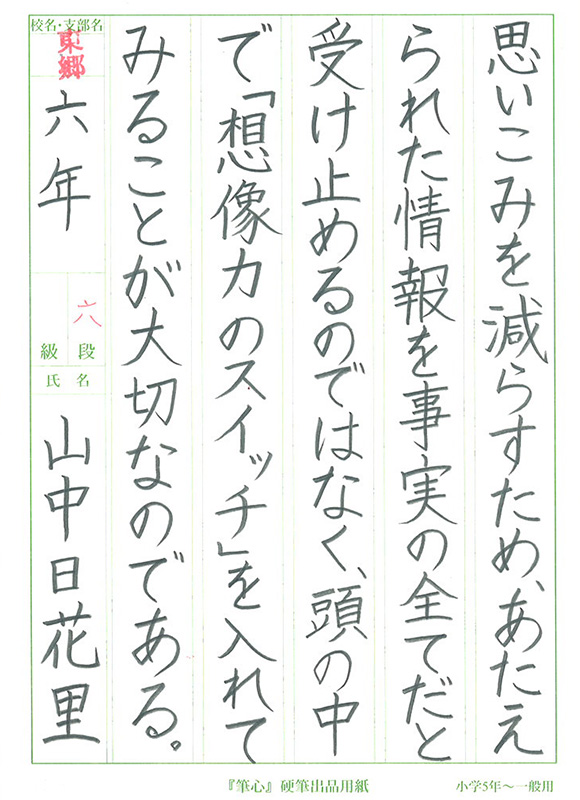 思いこみを減らすため、あたえ
られた情報を事実の全てだと
受け止めるのではなく、頭の中
で「想像力のスイッチ」を入れて
みることが大切なのである。
校名・支部名
東郷
六年
六
段
級
氏名
山中日花里
『筆心』硬筆出品用紙
小学5年〜一般用